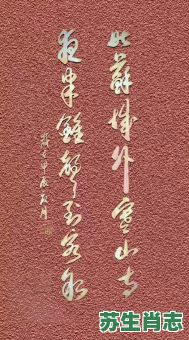 姑蘇城外寒山寺
夜半鐘聲到客船
苏生肖志